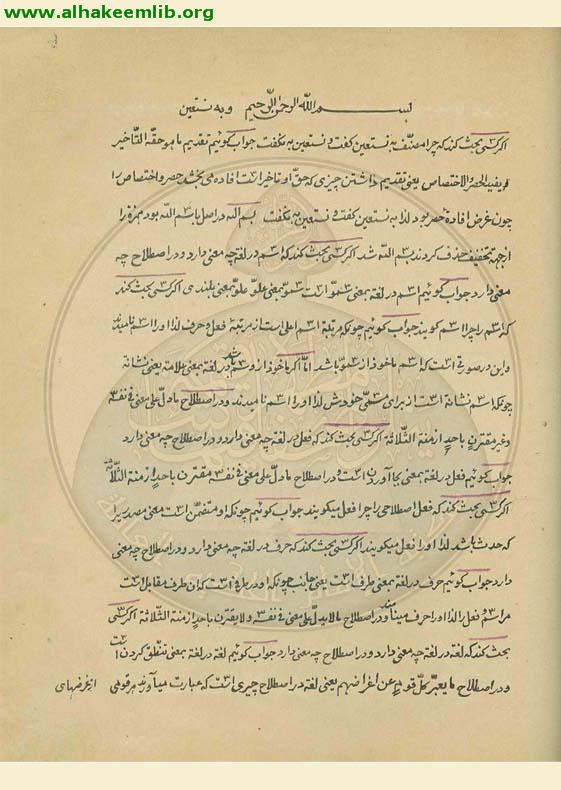 www.alhakeemlib.org
بسم الله الرحمن الرحیم وبه نستعین
اکر کسی بحث کند که چرا مصنّف به نستعین کفت و نستعین به نکفت جواب کوئیم تقدیم ما هو حقّه التّأخیر
یفید الحصر والاختصاص یعنی تقدیم داشتن چیزی که حقّ او تاخیر است افاده می بخشد حصر و اختصاص را
چون غرض افادهٔ حصر بود لذا به نستعین کفت و نستعین به نکفت بسم الله در اصل باسم الله بود همزه را
از جهة تخفیف حذف کردند بسم الله شد اکر کسی بحث کند که اسم در لغة چه معنی دارد و در اصطلاح چه
معنی دارد جواب کوئیم اسم در لغة بمعنی سموّ است سموّ بمعنی علوّ علوّ بمعنی بلندی اکر کسی بحث کند
که اسم را چرا اسم کویند جواب کوئیم چونکه مرتبهٔ اسم اعلی است از مرتبهٔ فعل و حرف لذا او را اسم نامیدند
و این در صورتی است که اسم ماخوذ از سموّ باشد امّا اکر ماخوذ از وسم باشد در لغة بمعنی علامة یعنی نشانه
چونکه اسم نشانه است از برای مسمّی خودش لذا او را اسم نامیدند و در اصطلاح ما دلّ علی معنی فی نفسه
وغیر مقترن باحد ازمنة الثّلاثة اکر کسی بحث کند که فعل در لغة چه معنی دارد و در اصطلاح چه معنی دارد
جواب کوئیم فعل در لغة بمعنی بجا آوردن است و در اصطلاح ما دلّ علی معنی فی نفسه مقترن باحد ازمنة الثّلاثة
اکر کسی بحث کند که فعل اصطلاحی را چرا فعل میکویند جواب کوئیم چونکه او متضمّن است معنی مصدر را
که حدث باشد لذا او را فعل میکویند اکر کسی بحث کند که حرف در لغة چه معنی دارد و در اصطلاح چه معنی
دارد جواب کوئیم حرف در لغة بمعنی طرف است یعنی جانب چونکه او در است که ان طرف مقابل است
مر اسم و فعل را لذا او را حرف مینامند و در اصطلاح ما لا یدلّ علی معنی فی نفسه ولا یقترن باحد ازمنة الثّلاثة اکر کسی
بحث کند که لغة در لغة چه معنی دارد و در اصطلاح چه معنی دارد جواب کوئیم لغة در لغة بمعنی تنطّق کردن است
و در اصطلاح ما یعبّر کلّ قوم عن اغراضهم یعنی لغة در اصطلاح چیزی است که عبارت میآورند هر قومی از غرضهای